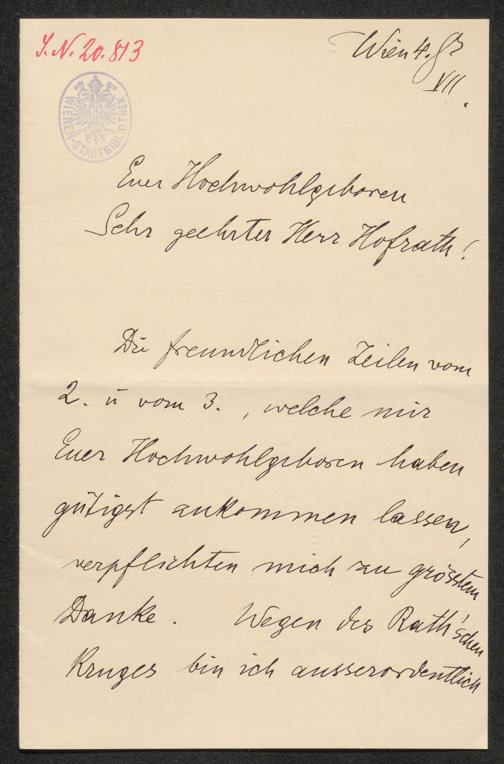 J.N. 20.813
Wien 4.
VII.
WIENER-STADTBIBLIOTHEK
Euer Hochwohlgeboren
Sehr geehrter Herr Hofrath!
Die freundlichen Zeilen vom
2. u vom 3., welche mir
Euer Hochwohlgeboren haben
gütigst ankommen lassen,
verpflichten mich zu grösstem
Danke. Wegen des Rath'schen
Kruges bin ich ausserordentlich